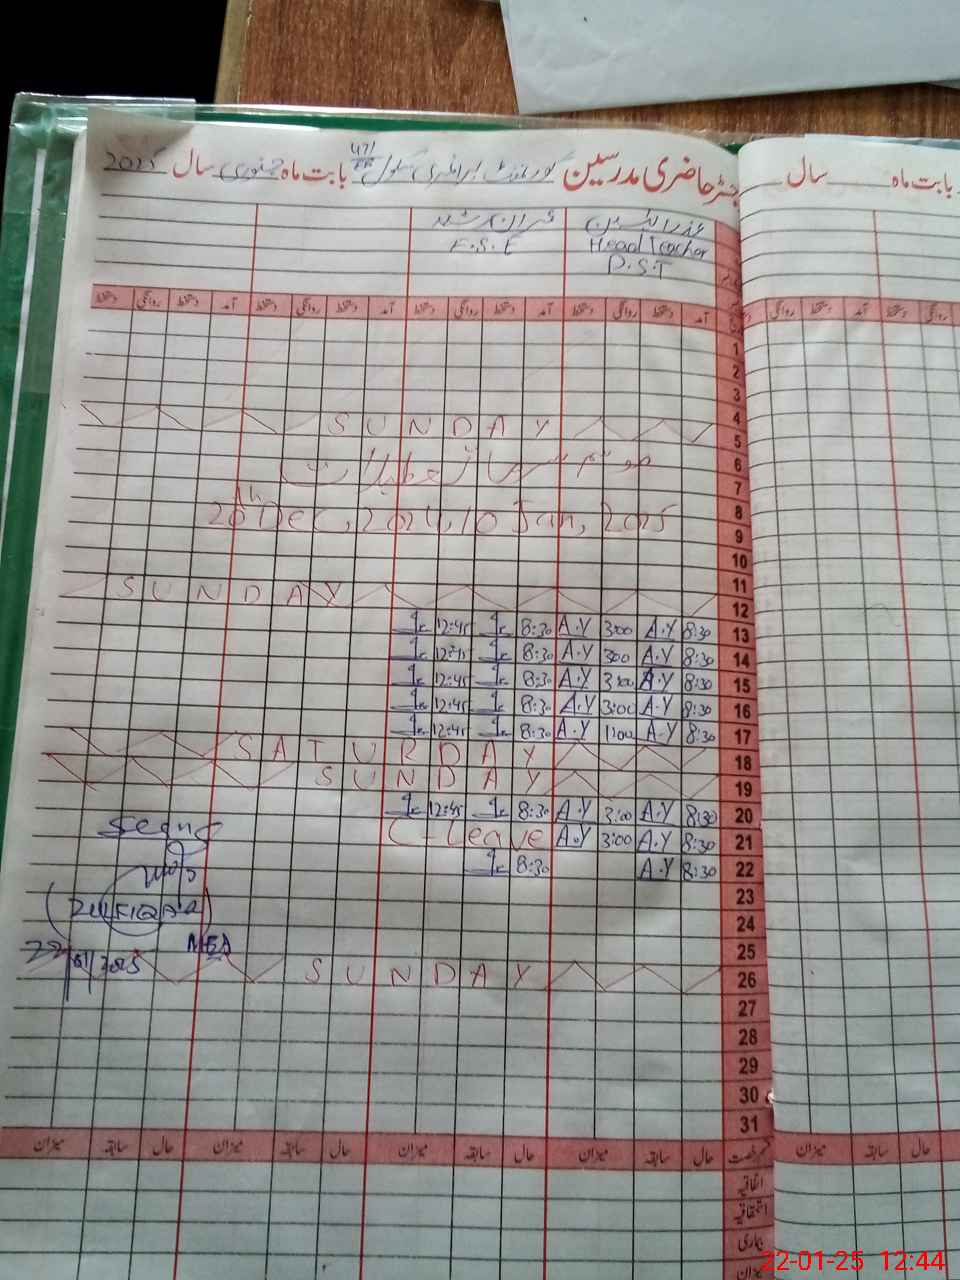 رجسٹر حاضری مدرسین گورنمنٹ پرائمری سکول 471/EB بابت ماہ جنوری سال 2025
بابت ماہ سال
Head Teacher
P.S.T
E.S.E
آمد دستخط روانگی دستخط آمد دستخط روانگی دستخط آمد دستخط روانگی دستخط آمد دستخط روانگی دستخط
1
2
3
4
5 SUNDAY
6 موسم سرما تعطیلات
7
8 20th Dec, 2024, 10 Jan, 2025
9
10
11
12 SUNDAY
13 8:30 A.Y 3:00 A.Y 8:30 12:45
14 8:30 A.Y 300 A.Y 8:30 12:45
15 8:30 A.Y 3:00 A.Y 8:30 12:45
16 8:30 A.Y 3:00 A.Y 8:30 12:45
17 8:30 A.Y 1100 A.Y 8:30 12:45
18 SATURDAY
19 SUNDAY
20 8:30 A.Y 3:00 A.Y 8:30 12:45
21 8:30 A.Y 3:00 A.Y C-Leave
22 8:30 A.Y 8:30
23
24
25
26 SUNDAY
27
28
29
30
31
Seen
(ZULFIQAR)
MEA
22/01/2025
حال سابقہ میزان حال سابقہ میزان حال سابقہ میزان حال سابقہ میزان
اتفاقیہ
استحقاقیہ
بیماری
میزان
22-01-25 12:44